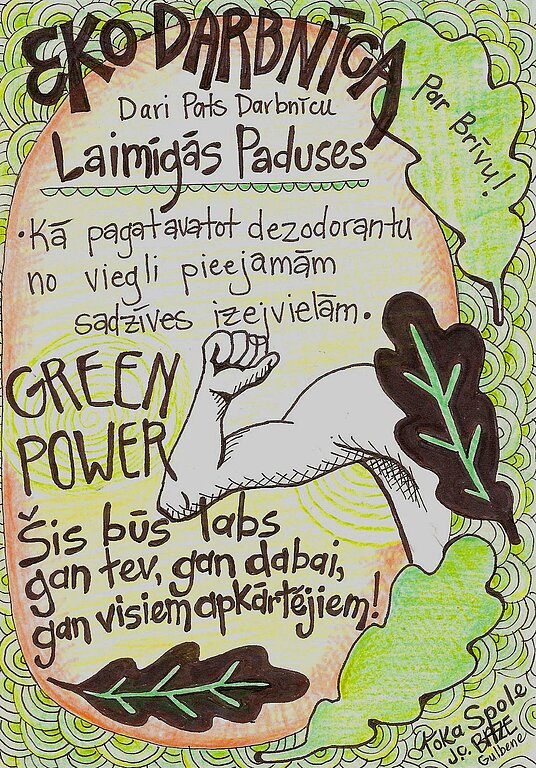 EKO-DARBNĪCA
Par Brīvu!
Dari Pats Darbnīcu
Laimīgās Paduses
•Kā pagatavatot dezodorantu
no viegli pieejamām
sadzīves izejvielām.
GREEN
POWER
Šis būs labs
gan tev, gan dabai,
gan visiem apkārtējiem!
Spole
J.C. BĀZE
Gulbene